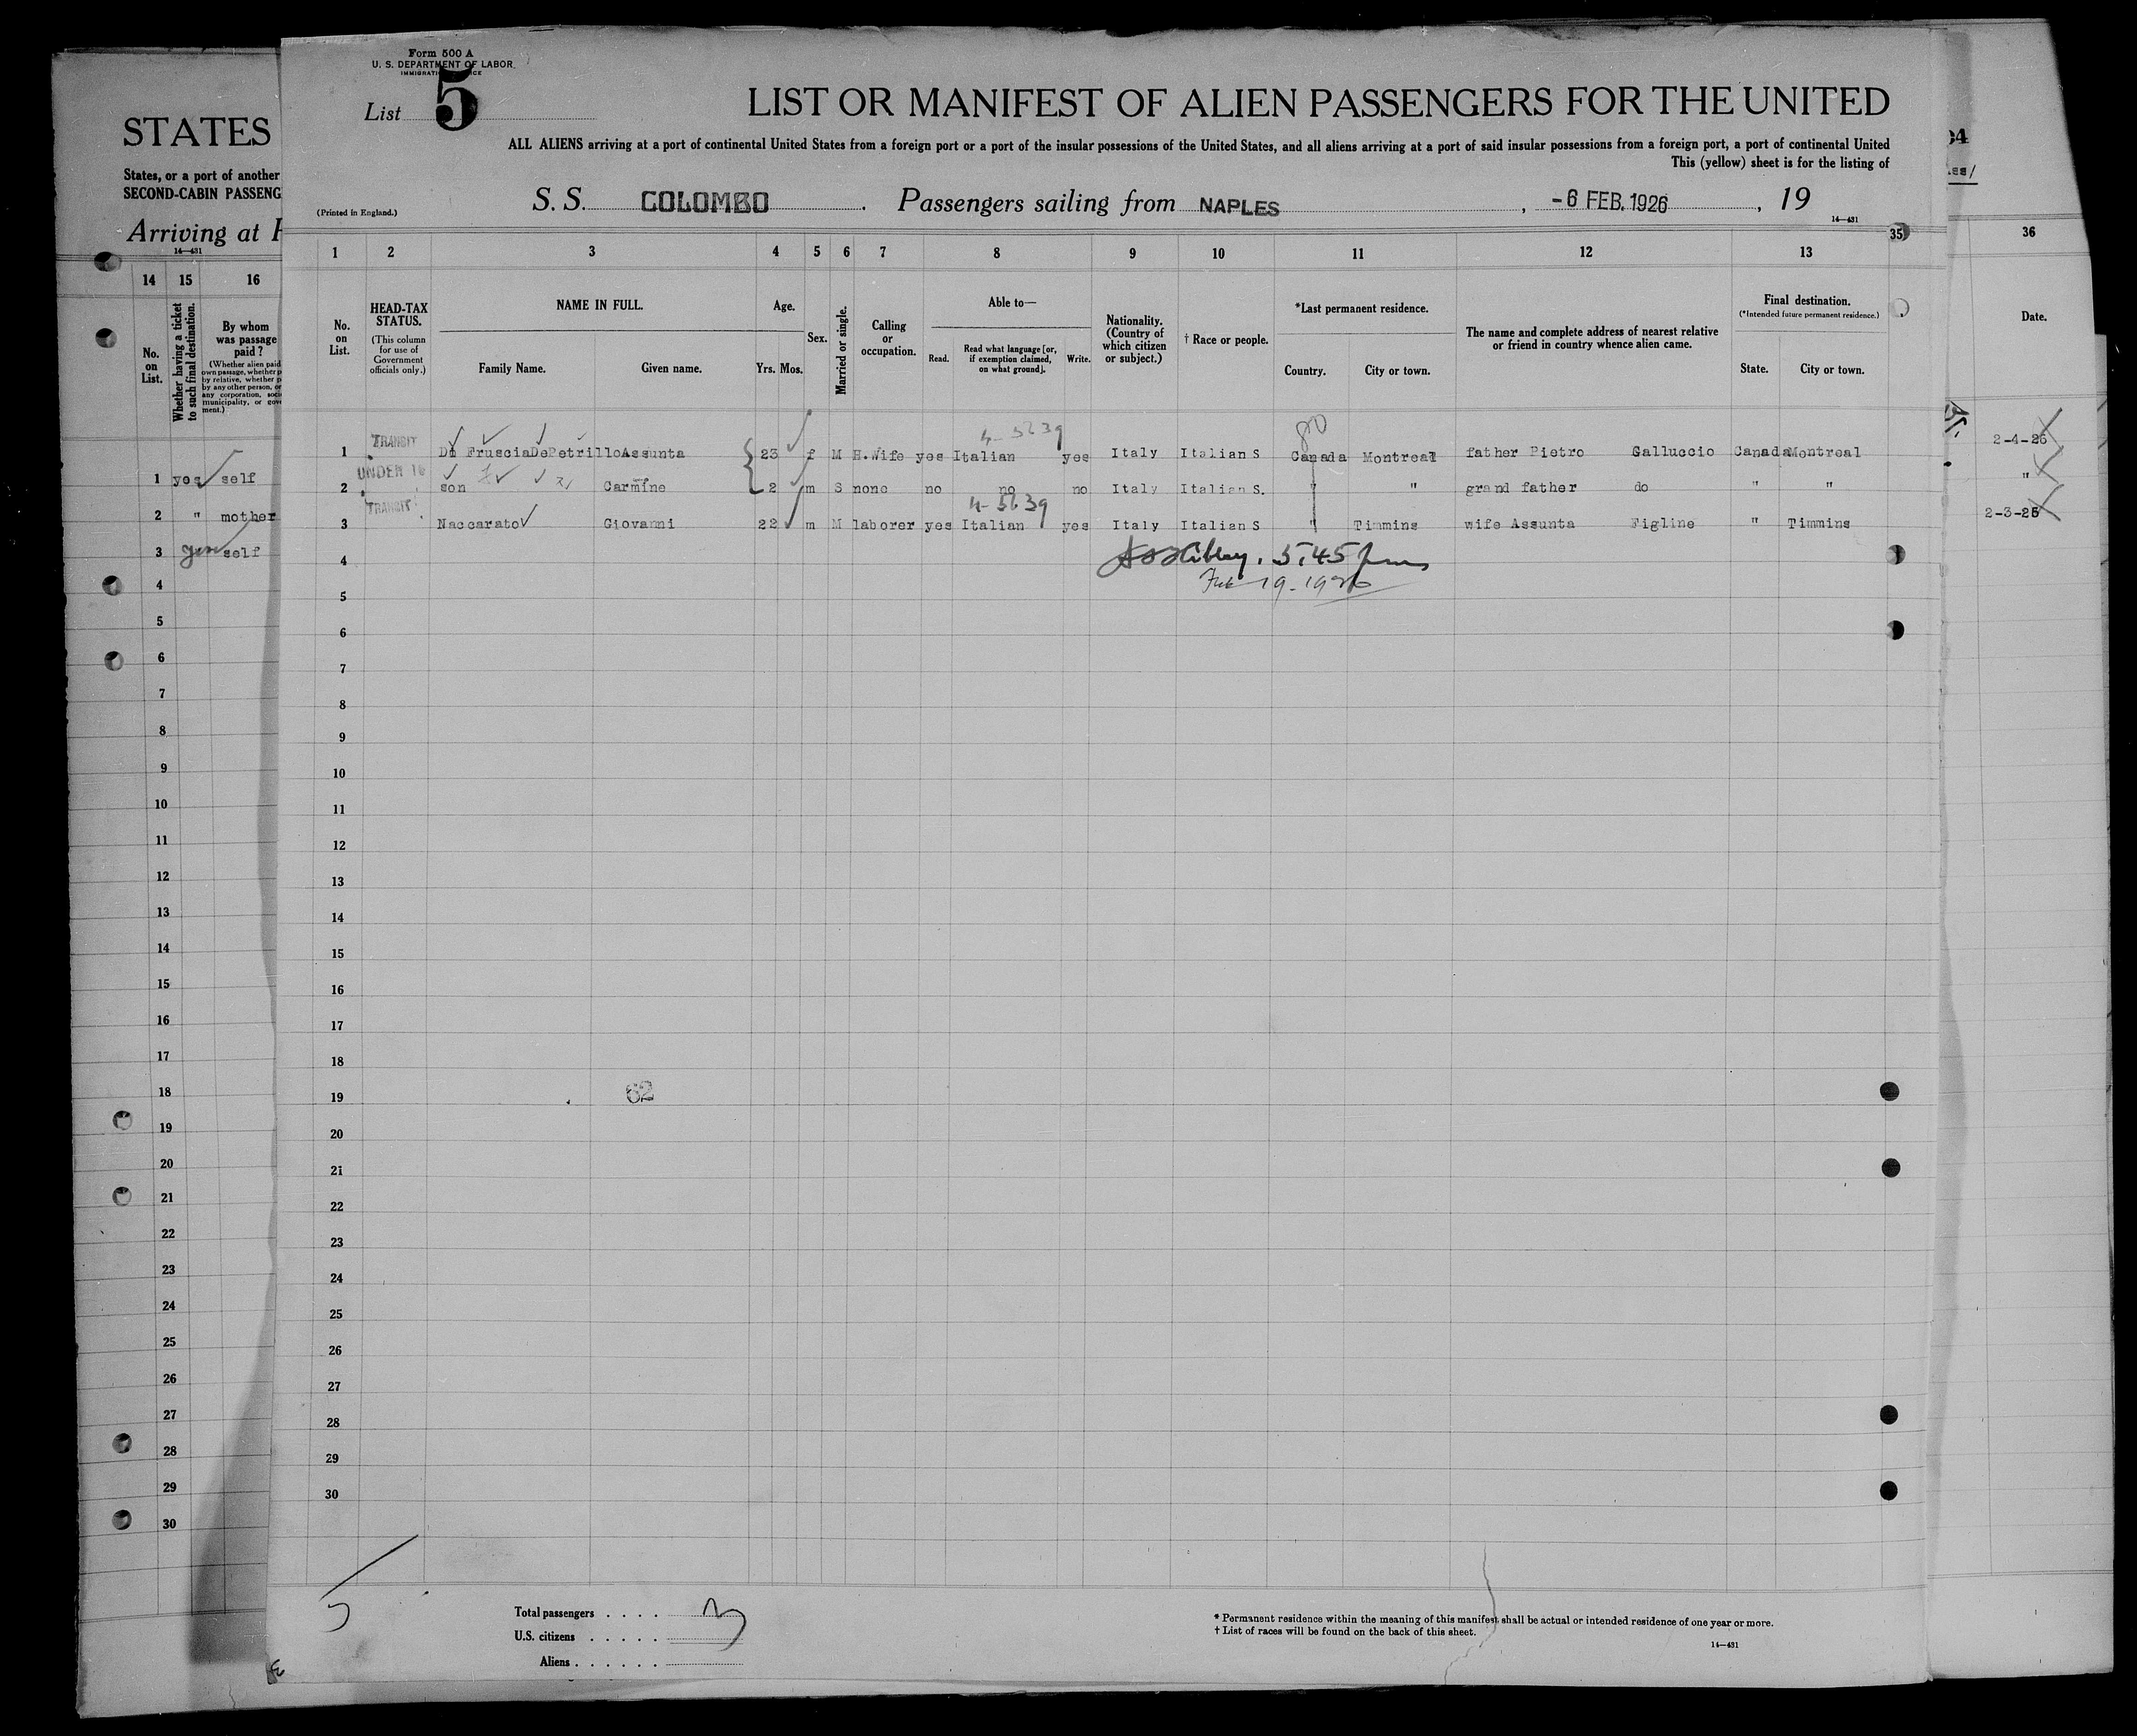 Form 500 A
U. S. DEPARTMENT OF LABOR
List 5
LIST OR MANIFEST OF ALIEN PASSENGERS FOR THE UNITED
ALL ALIENS arriving at a port of continental United States from a foreign port or a port of the insular possessions of the United States, and all aliens arriving at a port of said insular possessions from a foreign port, a port of continental United
This (yellow) sheet is for the listing of
(Printed in England.)
S. S. COLOMBO. Passengers sailing from NAPLES, -6 FEB. 1926, 19
14—431
1 2 3 4 5 6 7 8 9 10 11 12 13 35
No. on List.
HEAD-TAX STATUS.
(This column for use of Government officials only.)
NAME IN FULL.
Family Name. Given name.
Age.
Yrs. Mos.
Sex.
Married or single.
Calling or occupation.
Able to—
Read. Read what language [or, if exemption claimed, on what ground]. Write.
Nationality. (Country of which citizen or subject.)
† Race or people.
*Last permanent residence.
Country. City or town.
The name and complete address of nearest relative or friend in country whence alien came.
Final destination.
(*Intended future permanent residence.)
State. City or town.
4-5639
80
1 TRANSIT Di FrusciaDePetrilloAssunta 23 f M H.Wife yes Italian yes Italy Italian S Canada Montreal father Pietro Galluccio Canada Montreal
2 UNDER 16 son Carmine 2 m S none no no no Italy Italian S. " " grand father do " "
4-5639
3 TRANSIT Naccarato Giovanni 22 m M laborer yes Italian yes Italy Italian S " Timmins wife Assunta Figline " Timmins
4 5.45 pm
Feb 19-1926
5
6
7
8
9
10
11
12
13
14
15
16
17
18
19 62
20
21
22
23
24
25
26
27
28
29
30
5
Total passengers . . . . 3
U.S. citizens . . . . .
Aliens . . . . . .
* Permanent residence within the meaning of this manifest shall be actual or intended residence of one year or more.
† List of races will be found on the back of this sheet.
14—431
STATES
States, or a port of another
SECOND-CABIN PASSENG
Arriving at
14—431
14 15 16
No. on List.
Whether having a ticket to such final destination.
By whom was passage paid?
(Whether alien paid
own passage, whether
by relative, whether
by any other person, or
any corporation,
municipality, or
ment.)
1 yes self
2 " mother
3 yes self
4
5
6
7
8
9
10
11
12
13
14
15
16
17
18
19
20
21
22
23
24
25
26
27
28
29
30
36
Date.
2-4-26
"
2-3-26